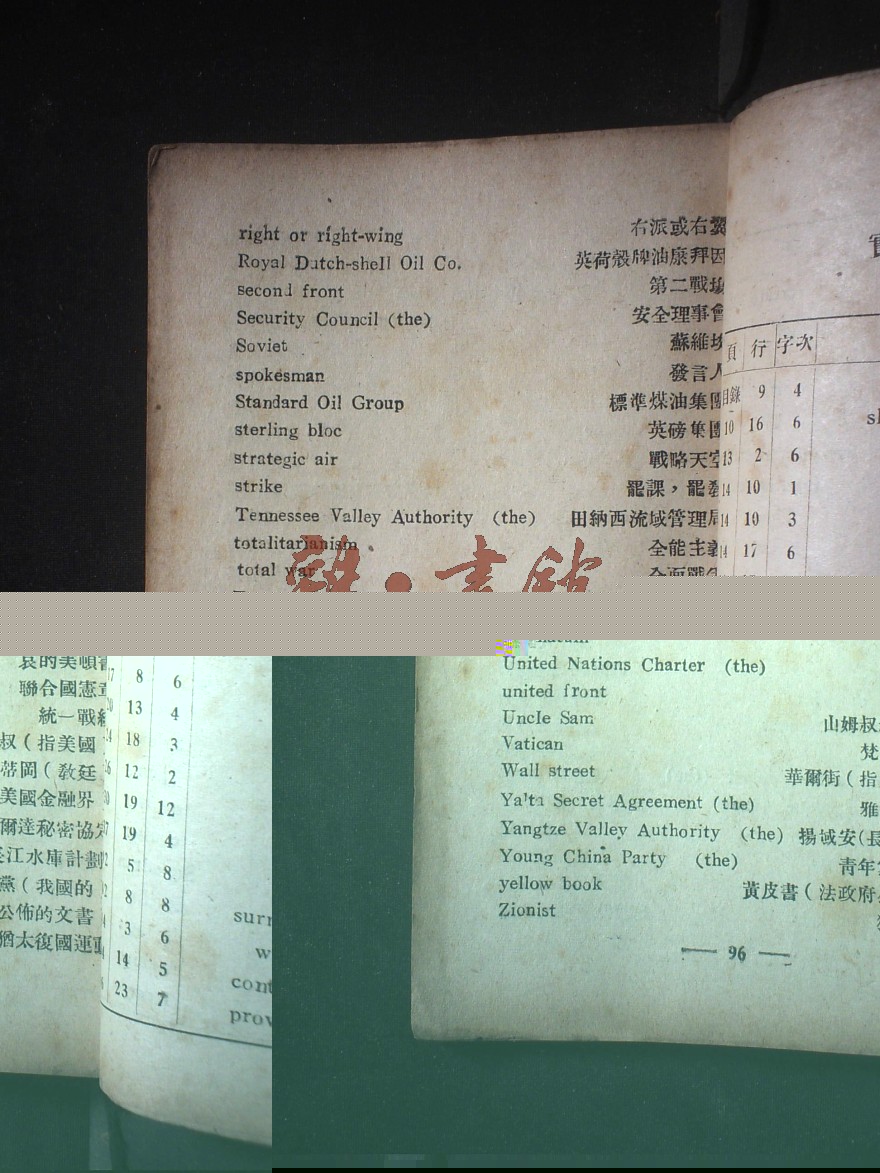 right or right-wing 右派或右翼
Royal Dutch-shell Oil Co. 英荷殼牌油
second front 第二戰場
Security Council (the) 安全理事會
Soviet 蘇維埃
spokesman 發言人
Standard Oil Group 標準煤油集團
sterling bloc 英磅集團
strategic air 戰略天空
strike 罷課，罷
Tennessee Valley Authority (the) 田納西流域管理局
totalitarianism 全能主義
total war 全面戰爭
頁 行 字次
目錄 9 4
10 16 6
13 2 6
14 10 1
14 10 3
14 17 6
哀的美頓書
聯合國憲章
統一戰線
叔（指美國
蒂岡（教廷
美國金融界
爾達秘密協定
長江水庫計劃
黨（我國的
公佈的文書
猶太復國運動
8 6
13 4
18 3
12 2
19 12
19 4
5 8
8 8
3 6
14 5
23 7
surr
w
cont
prov
United Nations Charter (the)
united front
Uncle Sam 山姆叔
Vatican 梵
Wall street 華爾街（指
Ya'ta Secret Agreement (the) 雅
Yangtze Valley Authority (the) 揚域安(長
Young China Party (the) 青年
yellow book 黃皮書（法政府
Zionist
— 96 —